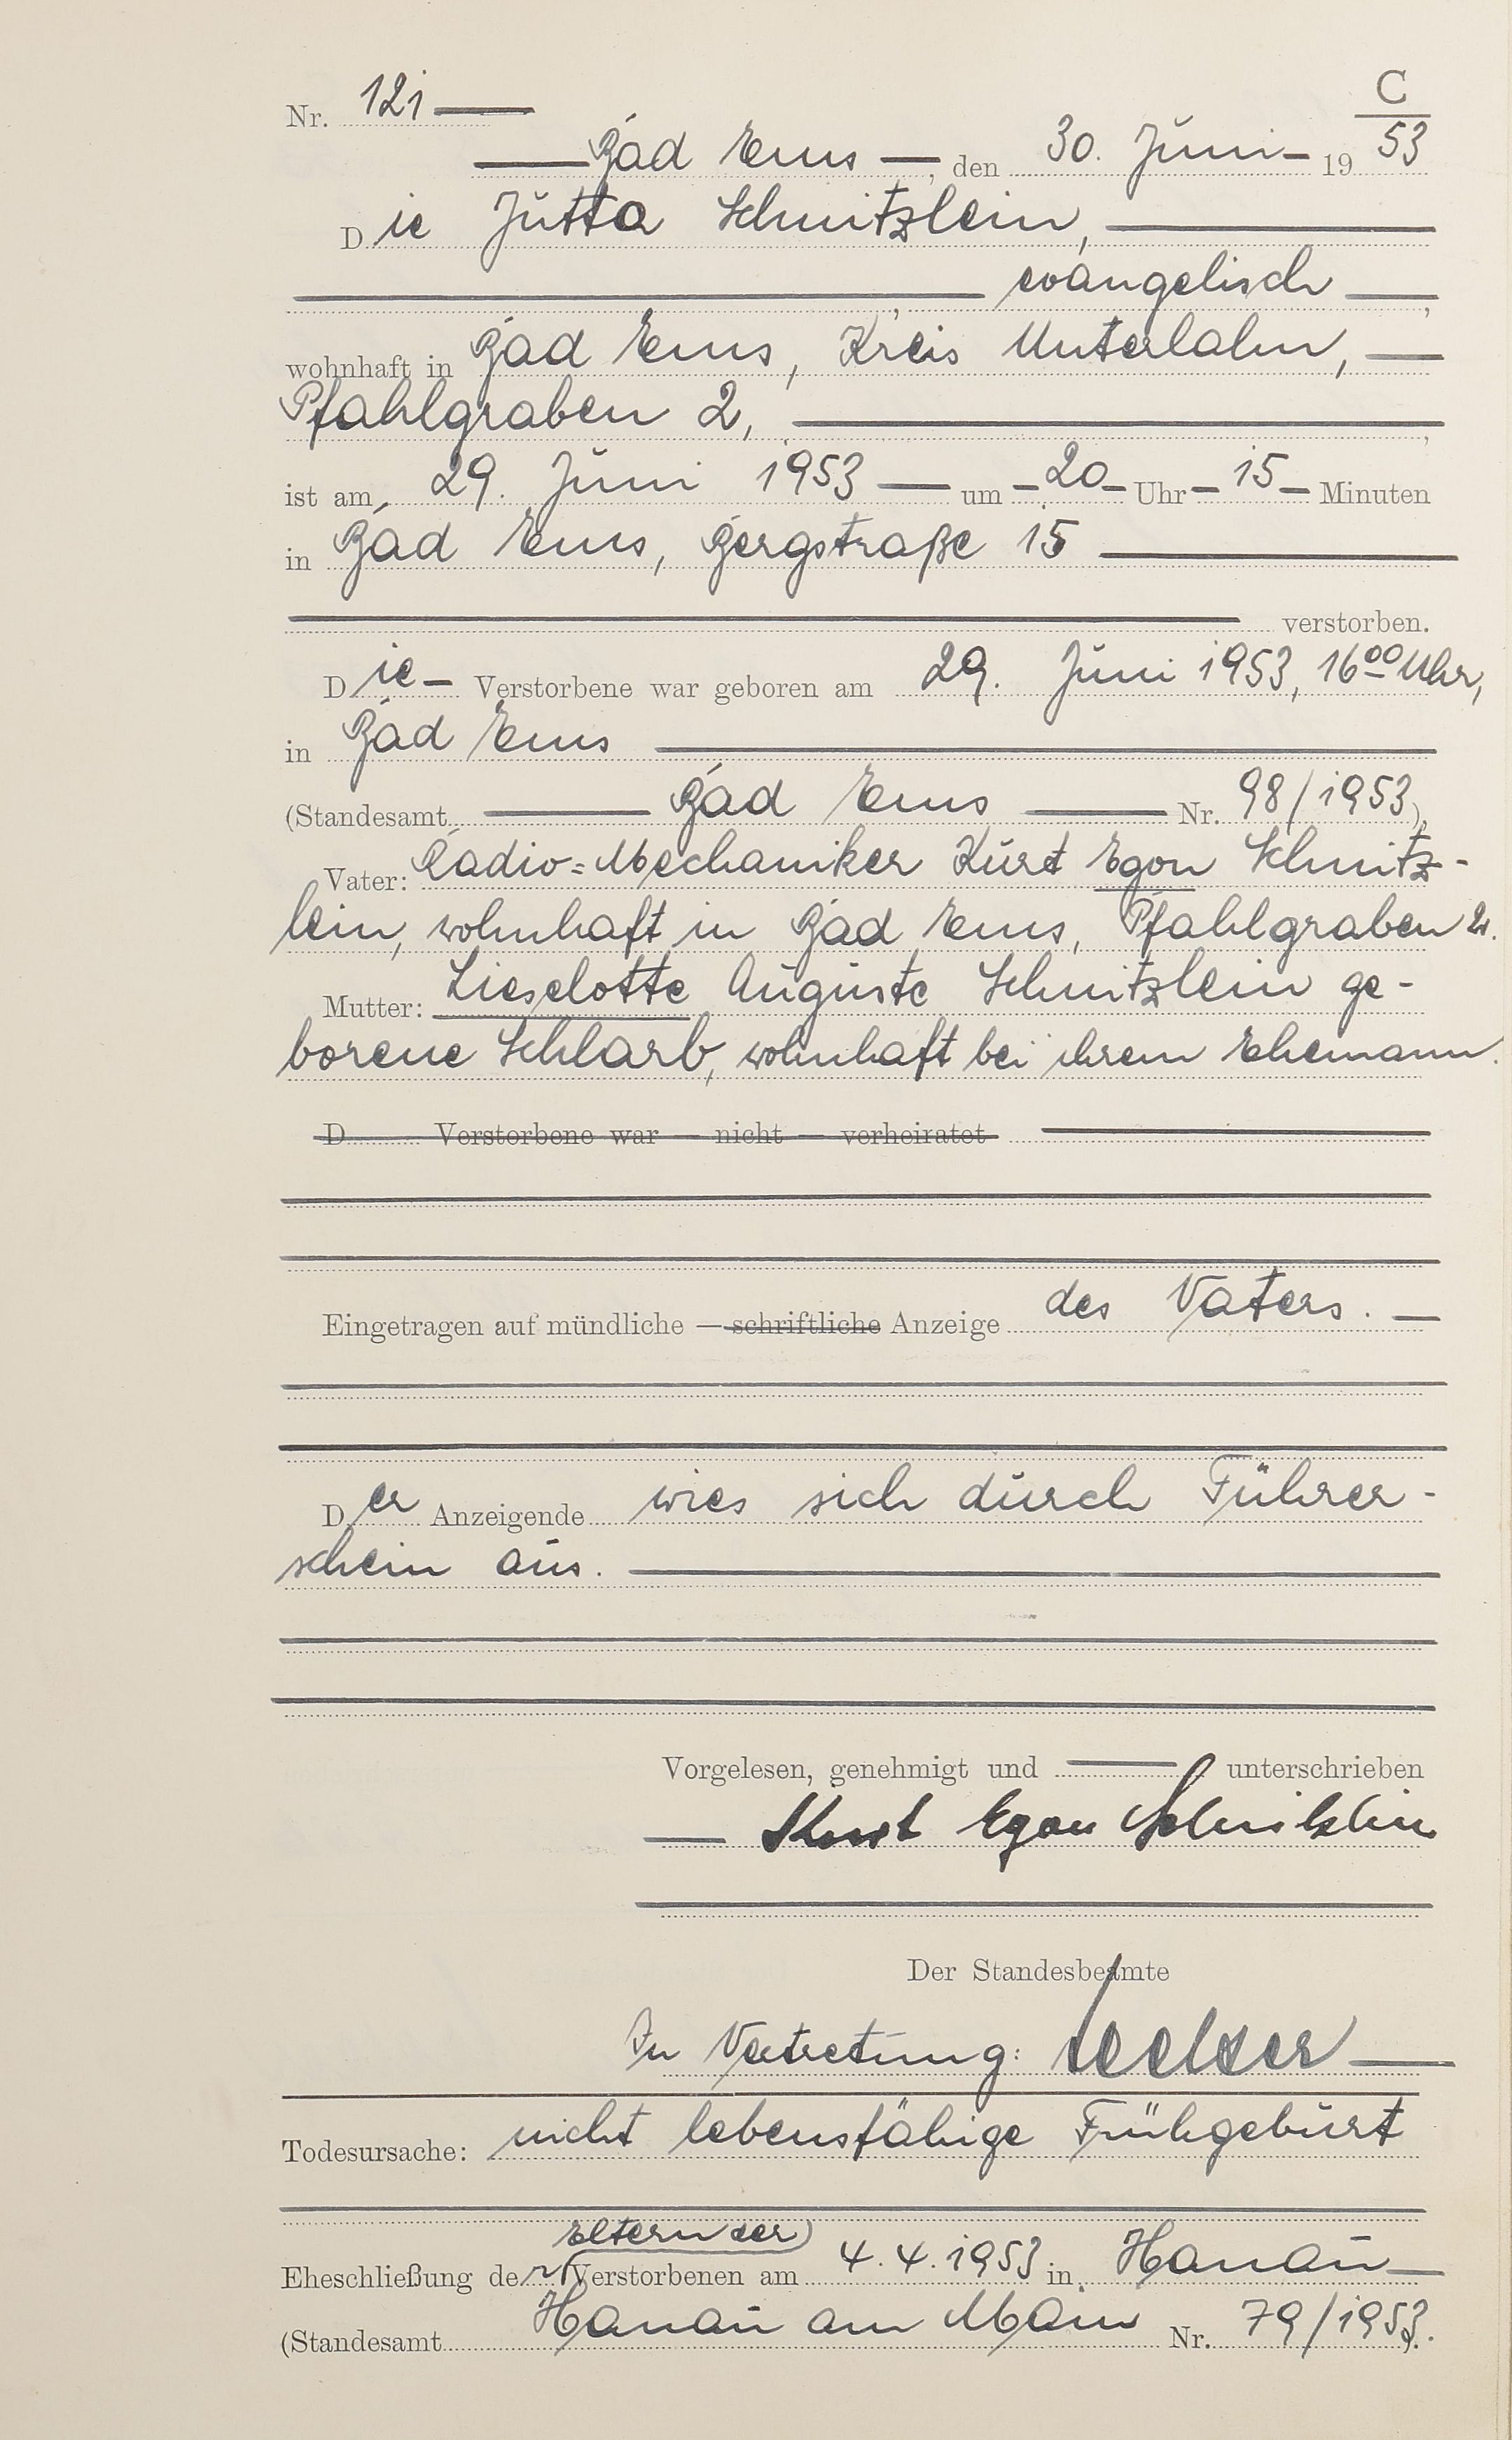 C
Nr. 121
Bad Ems, den 30. Juni 19 53
Die Jutta Schnitzlein,
evangelisch,
wohnhaft in Bad Ems, Kreis Unterlahn,
Pfahlgraben 2,
ist am 29. Juni 1953 um 20 Uhr 15 Minuten
in Bad Ems, Bergstraße 15
verstorben.
Die Verstorbene war geboren am 29. Juni 1953, 16⁰⁰ Uhr,
in Bad Ems
(Standesamt Bad Ems Nr. 98/1953)
Vater: Radio=Mechaniker Kurt Egon Schnitz-
lein, wohnhaft in Bad Ems, Pfahlgraben 2.
Mutter: Lieselotte Auguste Schnitzlein ge-
borene Schlarb, wohnhaft bei ihrem Ehemann.
D Verstorbene war — nicht — verheiratet
Eingetragen auf mündliche — schriftliche Anzeige des Vaters.
Der Anzeigende wies sich durch Führer-
schein aus.
Vorgelesen, genehmigt und unterschrieben
Kurt Egon Schnitzlein
Der Standesbeamte
In Vertretung:
Todesursache: nicht lebensfähige Frühgeburt
Eltern der
Eheschließung der Verstorbenen am 4.4.1953 in Hanau
(Standesamt Hanau am Main Nr. 79/1953).